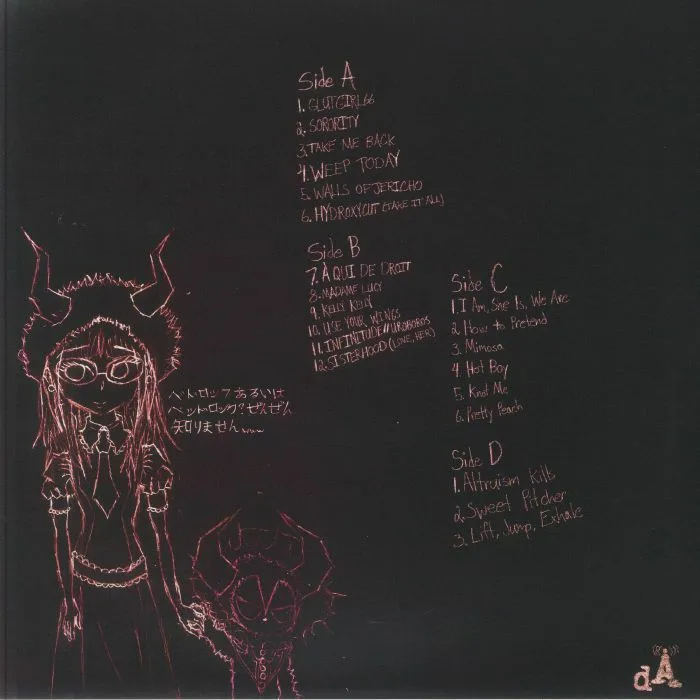 Side A
1. GLUTGIRL66
2. SORORITY
3. TAKE ME BACK
4. WEEP TODAY
5. WALLS OF JERICHO
6. HYDROXYCUT (TAKE IT ALL)
Side B
7. À QUI DE DROIT
8. MADAME LUCY
9. KELLY KELLY
10. USE YOUR WINGS
11. INFINITUDE // UROBOROS
12. SISTERHOOD (LOVE, HER)
Side C
1. I Am, She Is, We Are
2. How to Pretend
3. Mimosa
4. Hot Boy
5. Knot Me
6. Pretty Peach
Side D
1. Altruism Kills
2. Sweet Pitcher
3. Lift, Jump, Exhale
ベドロックあるいは
ベッドロック?ぜんぜん
知りません
dA